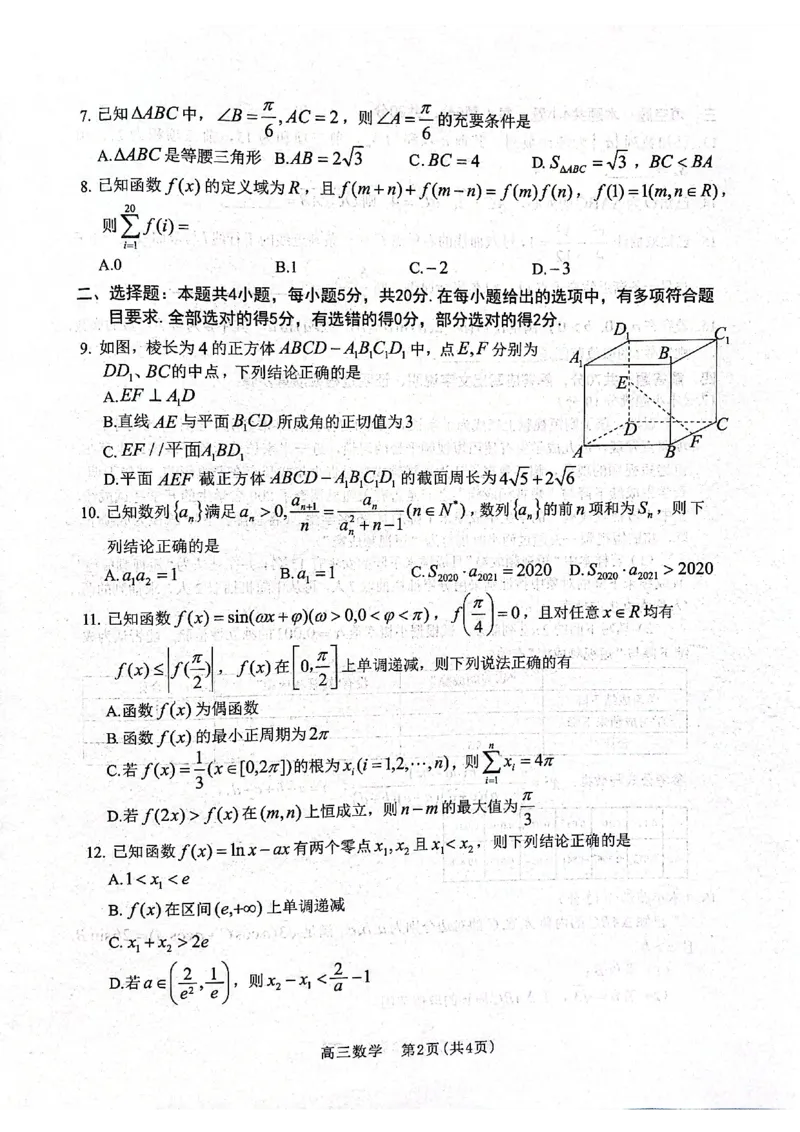 7. 已知ΔABC中，∠B=π/6, AC=2，则∠A=π/6的充要条件是
A.ΔABC是等腰三角形 B.AB=2√3 C.BC=4 D.S_{ΔABC}=√3，BC<BA
8. 已知函数f(x)的定义域为R，且f(m+n)+f(m−n)=f(m)f(n)，f(1)=1(m,n∈R)，
则∑_{i=1}^{20} f(i)=
A.0 B.1 C.−2 D.−3
二、选择题：本题共4小题，每小题5分，共20分.在每小题给出的选项中，有多项符合题
目要求.全部选对的得5分，有选错的得0分，部分选对的得2分.
9. 如图，棱长为4的正方体ABCD−A₁B₁C₁D₁中，点E,F分别为
DD₁、BC的中点，下列结论正确的是
A.EF⊥A₁D
B.直线AE与平面B₁CD所成角的正切值为3
C. EF//平面A₁BD₁
D.平面AEF截正方体ABCD−A₁B₁C₁D₁的截面周长为4√5+2√6
D₁ C₁
A₁ B₁
E
D C
F
A B
10. 已知数列{aₙ}满足aₙ>0, a_{n+1}/n = aₙ/(aₙ²+n−1) (n∈N*)，数列{aₙ}的前n项和为Sₙ，则下
列结论正确的是
A.a₁a₂=1 B.a₁=1 C.S₂₀₂₀·a₂₀₂₁=2020 D.S₂₀₂₀·a₂₀₂₁>2020
11. 已知函数f(x)=sin(ωx+φ)(ω>0,0<φ<π)，f(π/4)=0，且对任意x∈R均有
f(x)≤|f(π/2)|，f(x)在[0,π/2]上单调递减，则下列说法正确的有
A.函数f(x)为偶函数
B.函数f(x)的最小正周期为2π
C.若f(x)=1/3(x∈[0,2π])的根为xᵢ(i=1,2,⋯,n)，则∑_{i=1}^{n} xᵢ=4π
D.若f(2x)>f(x)在(m,n)上恒成立，则n−m的最大值为π/3
12. 已知函数f(x)=lnx−ax有两个零点x₁,x₂且x₁<x₂，则下列结论正确的是
A.1<x₁<e
B. f(x)在区间(e,+∞)上单调递减
C.x₁+x₂>2e
D.若a∈(2/e²,1/e)，则x₂−x₁<2/a−1
高三数学 第2页(共4页)